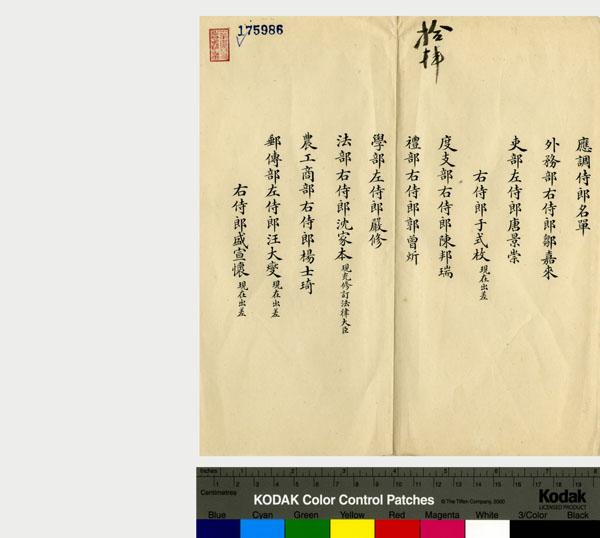 應調侍郎名單
外務部右侍郎鄒嘉來
吏部左侍郎唐景崇
右侍郎于式枚 現在出差
度支部右侍郎陳邦瑞
禮部右侍郎郭曾炘
學部左侍郎嚴修
法部右侍郎沈家本 現充修訂法律大臣
農工商部右侍郎楊士琦
郵傳部左侍郎汪大燮 現在出差
右侍郎盛宣懷 現在出差
175986
Inches 1 2 3 4 5 6 7 8
Centimetres 1 2 3 4 5 6 7 8 9 10 11 12 13 14 15 16 17 18 19
KODAK Color Control Patches © The Tiffen Company, 2000 Kodak
LICENSED PRODUCT
Blue Cyan Green Yellow Red Magenta White 3/Color Black